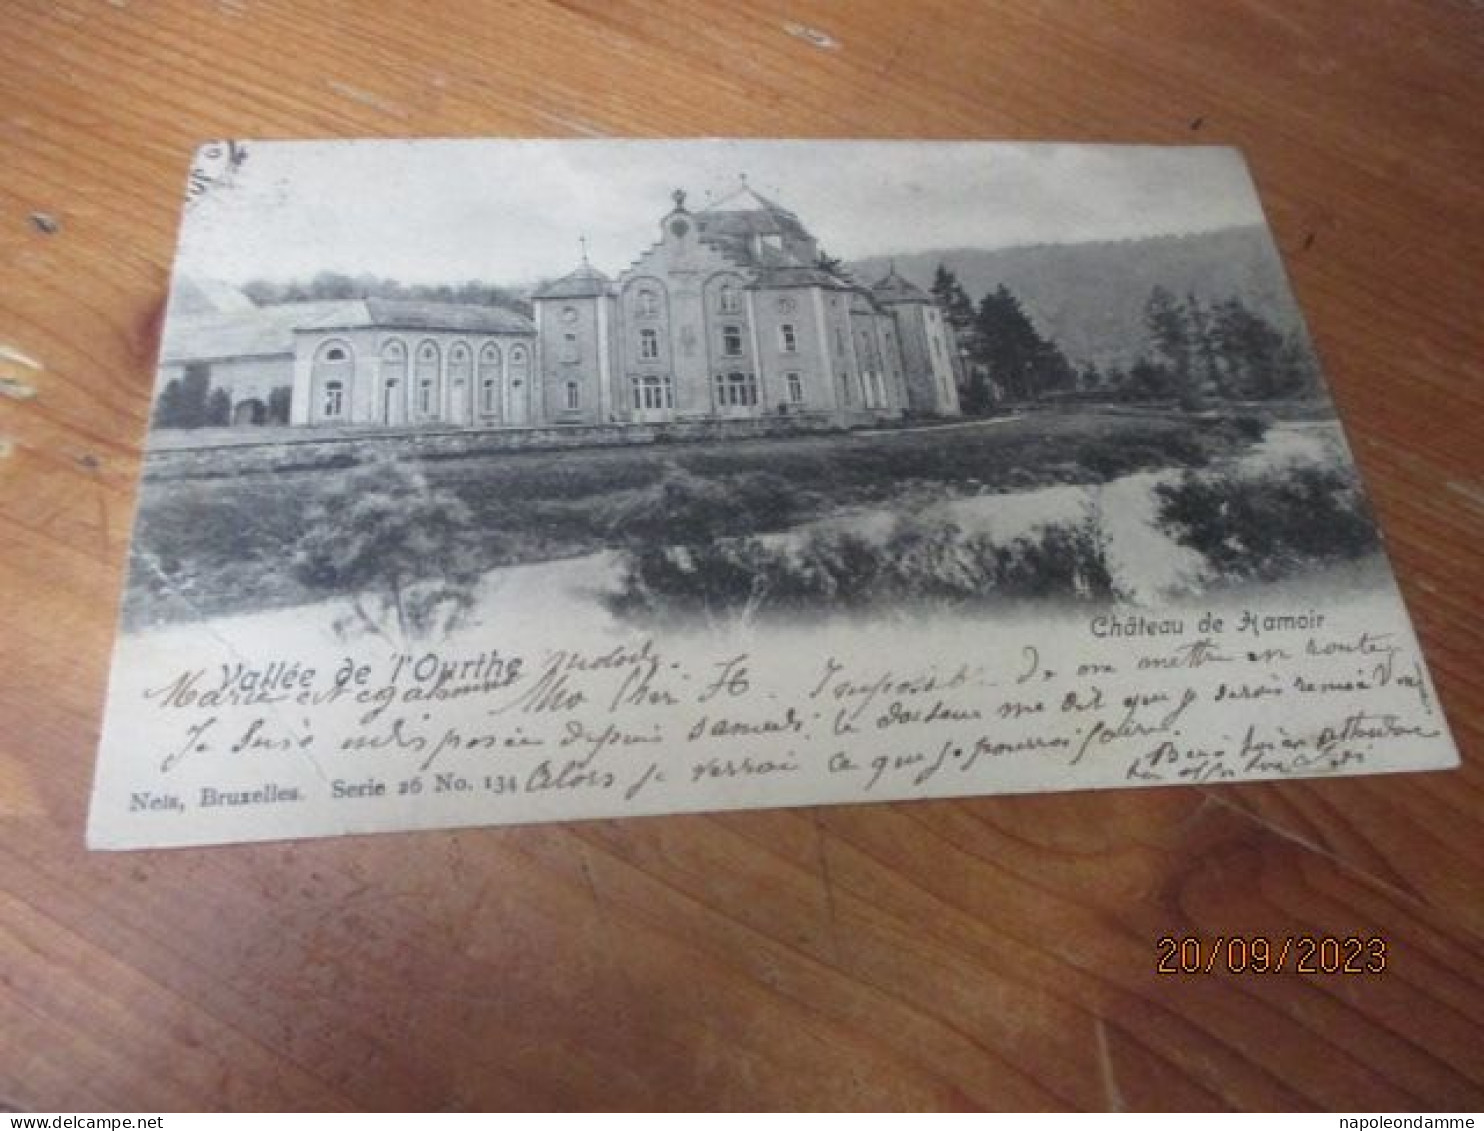 Château de Hamoir
Vallée de l'Ourthe malade.
Marie est également Mon Cher H. Impossible de me mettre en route,
Je suis indisposée depuis samedi; le docteur me dit que je serais remise
Alors je verrai ce que je pourrai faire.
Nels, Bruxelles. Serie 26 No. 134
20/09/2023
napoleondamme